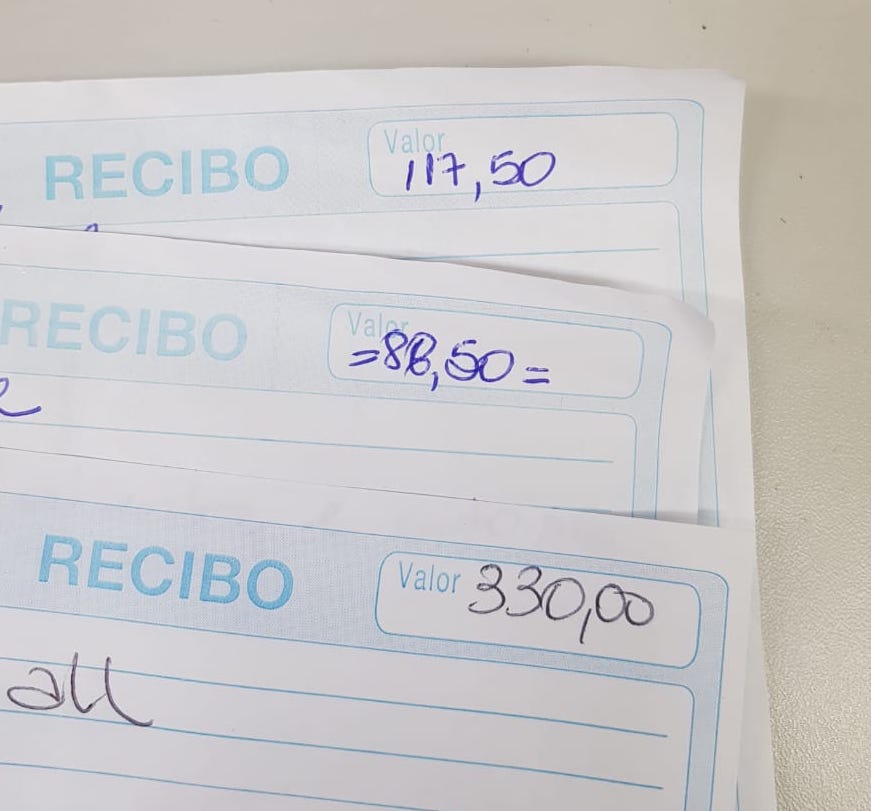 RECIBO Valor 117,50
RECIBO Valor =88,50=
RECIBO Valor 330,00
all